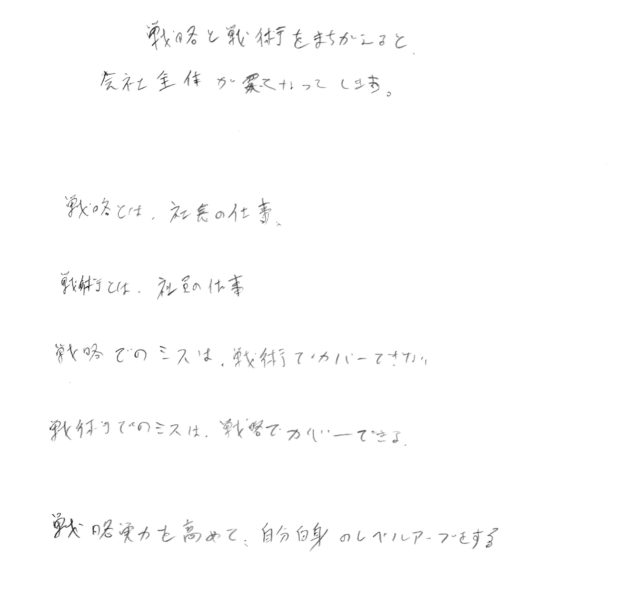 戦略と戦術をまちがえると、
会社全体が悪くなってします。
戦略とは、社長の仕事、
戦術とは、社員の仕事
戦略でのミスは、戦術でカバーできない
戦術でのミスは、戦略でカバーできる。
戦略実力を高めて、自分自身のレベルアープをする